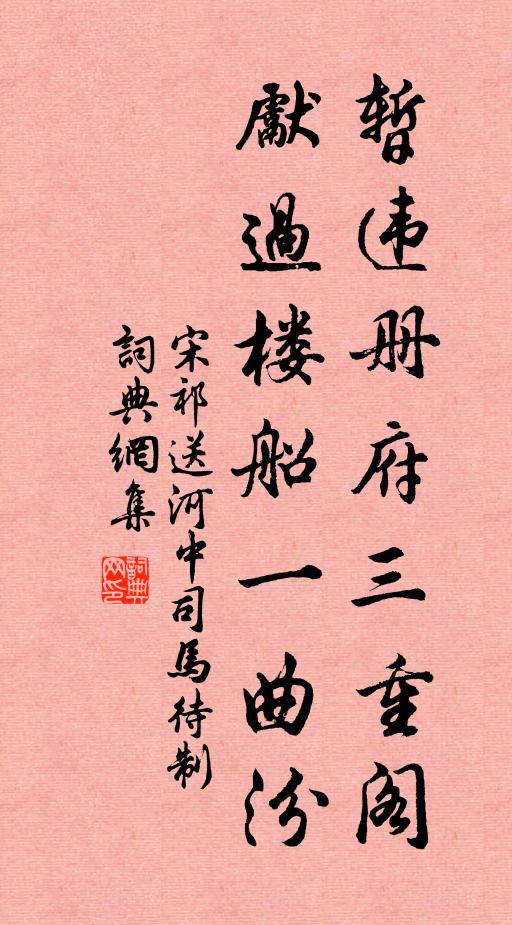 暫违册府三重阁
獻過楼船一曲汾
宋祁送河中司馬待制
詞典網集
詞典网印